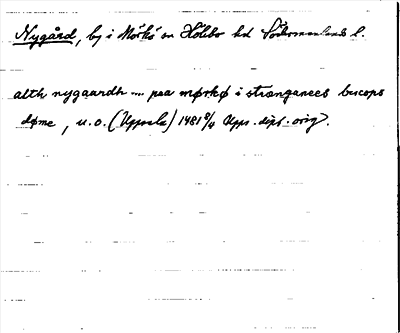 Nygård, by i Mörkö sn Hölebo hd Södermanlands l.
alth nygaardh — paa mørkø i strængænees biscops
døme, u.o. (Uppsala) 1481 8/4 Upps. dipl. orig.